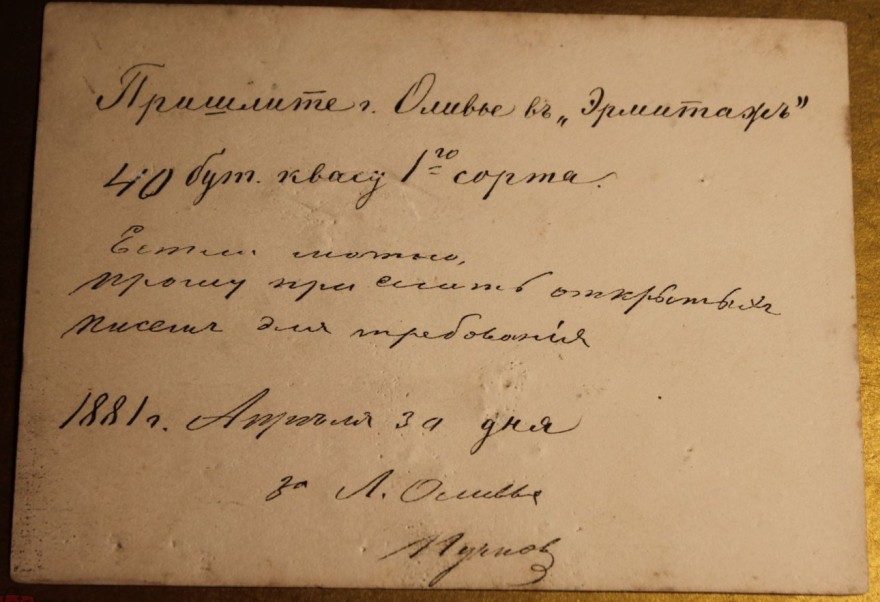 Пришлите г. Оливье въ „Эрмитажъ"
40 бут. квасу 1го сорта.
Естли можно,
прошу прислать открытыхъ
писемъ для требованія
1881 г. Апрѣля 30 дня
за Л. Оливье